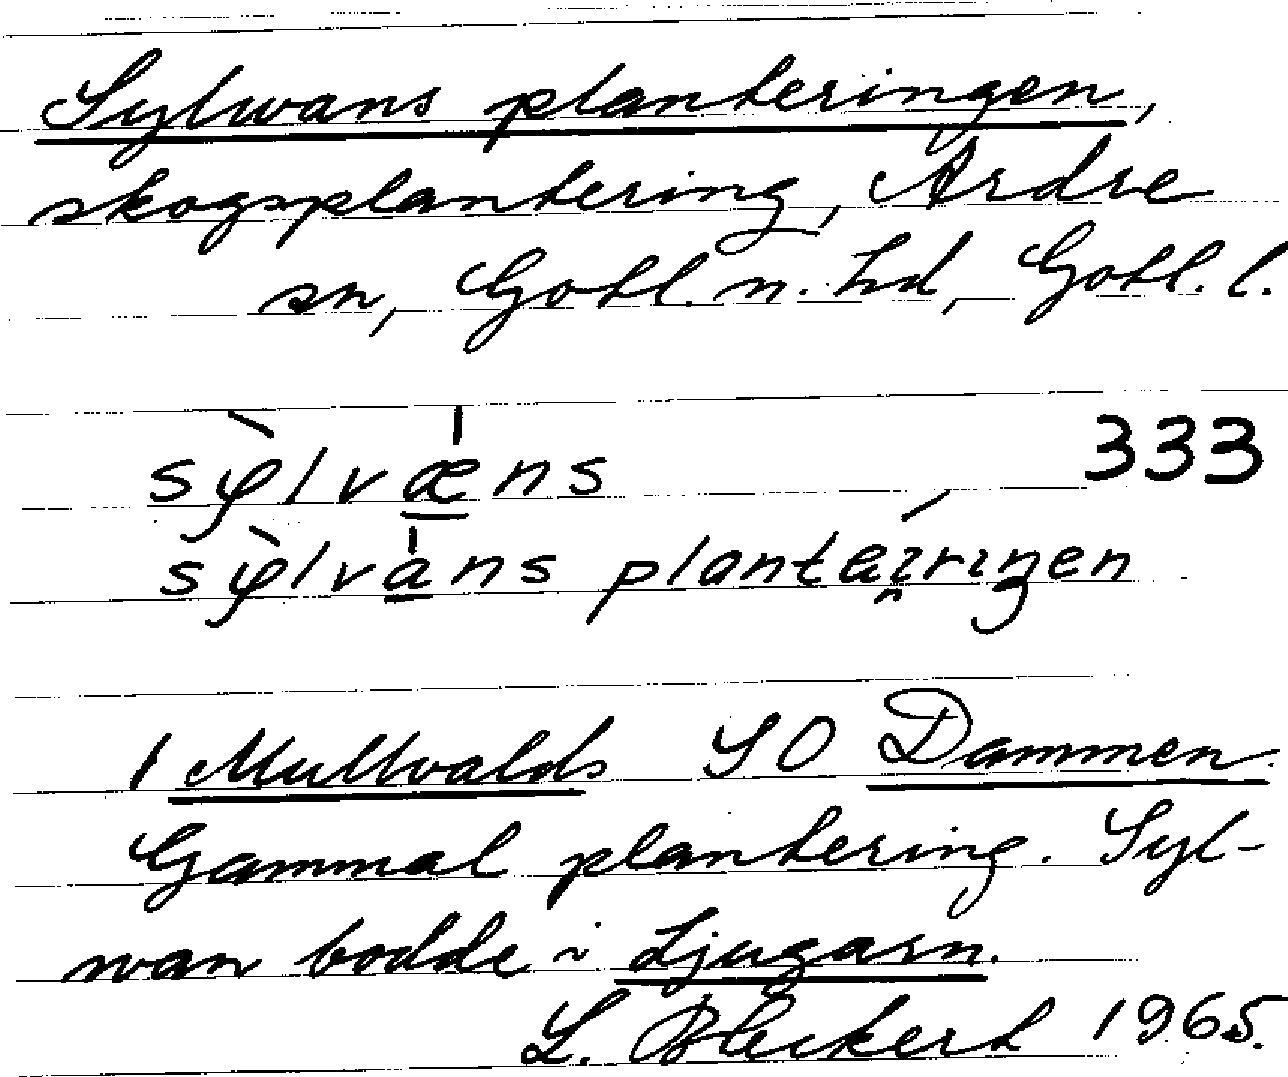 Sylwans planteringen,
skogsplantering, Ardre
sn, Gotl. n. hd, Gotl. l.
sỳlvæns 333
sỳlvans plantæiringen
1 Mullvalds SO Dammen.
Gammal plantering. Syl-
wan bodde i Ljugarn.
L. Bleckert 1965.